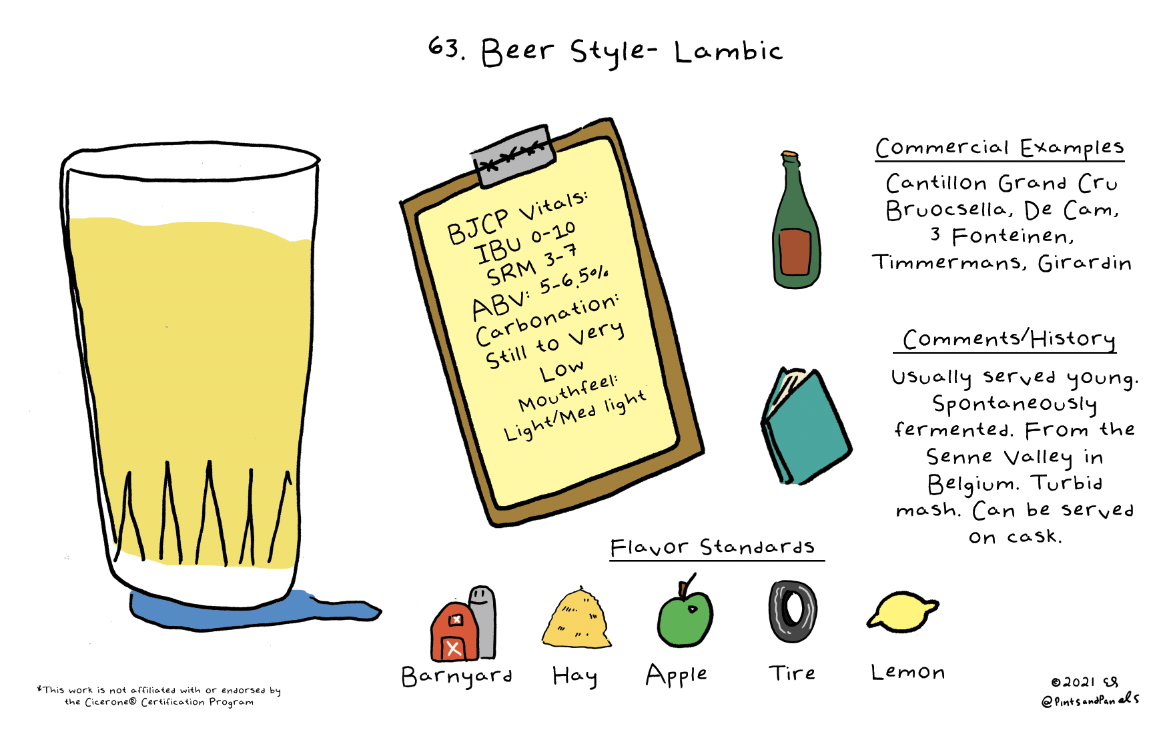 63. Beer Style- Lambic
BJCP Vitals:
IBU 0-10
SRM 3-7
ABV: 5-6.5%
Carbonation:
Still to Very
Low
Mouthfeel:
Light/Med light
Commercial Examples
Cantillon Grand Cru
Bruocsella, De Cam,
3 Fonteinen,
Timmermans, Girardin
Comments/History
Usually served young.
Spontaneously
fermented. From the
Senne Valley in
Belgium. Turbid
mash. Can be served
on cask.
Flavor Standards
Barnyard Hay Apple Tire Lemon
*This work is not affiliated with or endorsed by
the Cicerone® Certification Program
©2021
@PintsandPanels